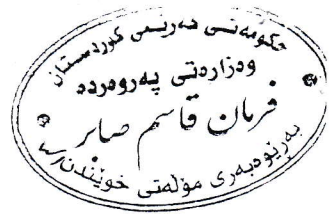 حکومەتی هەرێمی کوردستان
وەزارەتی پەروەردە
فرمان قاسم صابر
بەڕێوەبەری مۆڵەتی خوێندن